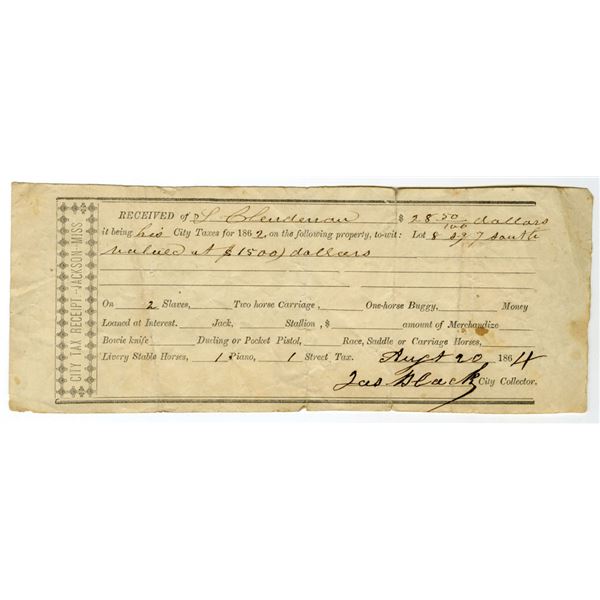 CITY TAX RECEIPT--JACKSON--MISS
RECEIVED of S Clendenan $ 28 50/100 dollars
it being his City Taxes for 1862, on the following property, to-wit: Lot 8 7 south
valued at $1500 dollars
On 2 Slaves, Two horse Carriage, One-horse Buggy, Money
Loaned at Interest. Jack, Stallion, $ amount of Merchandize
Bowie knife Dueling or Pocket Pistol, Race, Saddle or Carriage Horses,
Livery Stable Horses, 1 Piano, 1 Street Tax. Augt 20 1864
Jas Black City Collector.